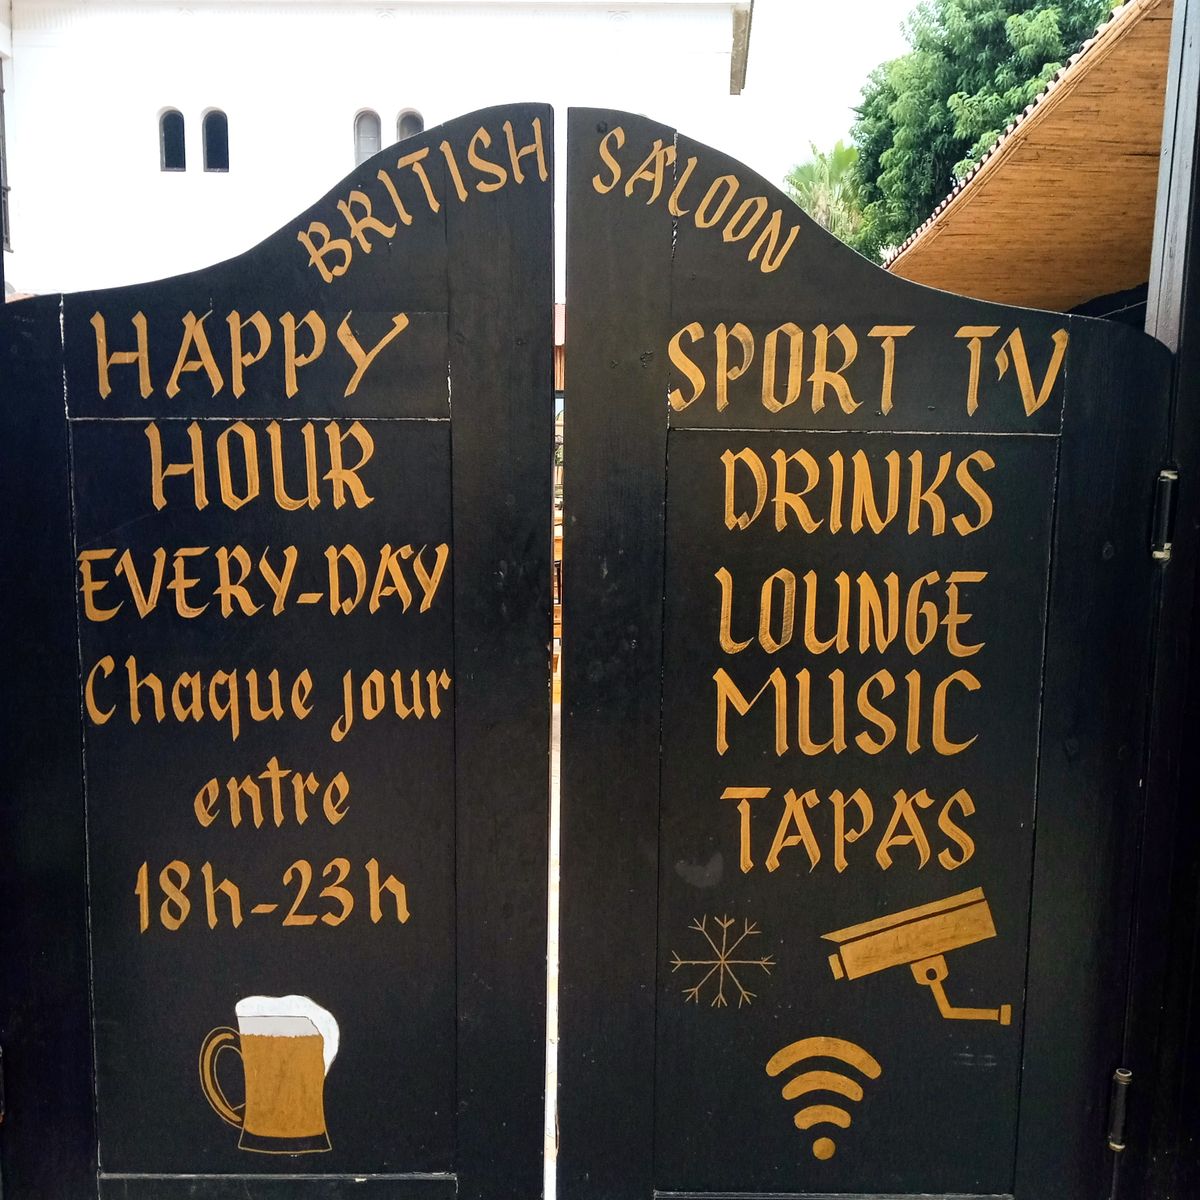 BRITISH SALOON
HAPPY
HOUR
EVERY-DAY
Chaque jour
entre
18h-23h
SPORT TV
DRINKS
LOUNGE
MUSIC
TAPAS